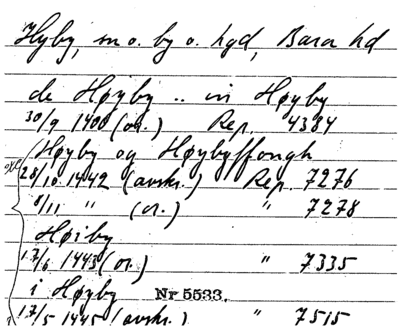 Hyby, sn o. by o. hgd, Bara hd
de Høyby .. in Høyby
30/9 1400 (or.) Rep. 4384
Høyby og Høybyffongh
28/10 1442 (avskr.) Rep. 7276
8/11 " (or.) " 7278
Høiby
17/6 1443 (or.) " 7335
i Høyby Nr 5533.
17/5 1445 (avskr.) " 7515